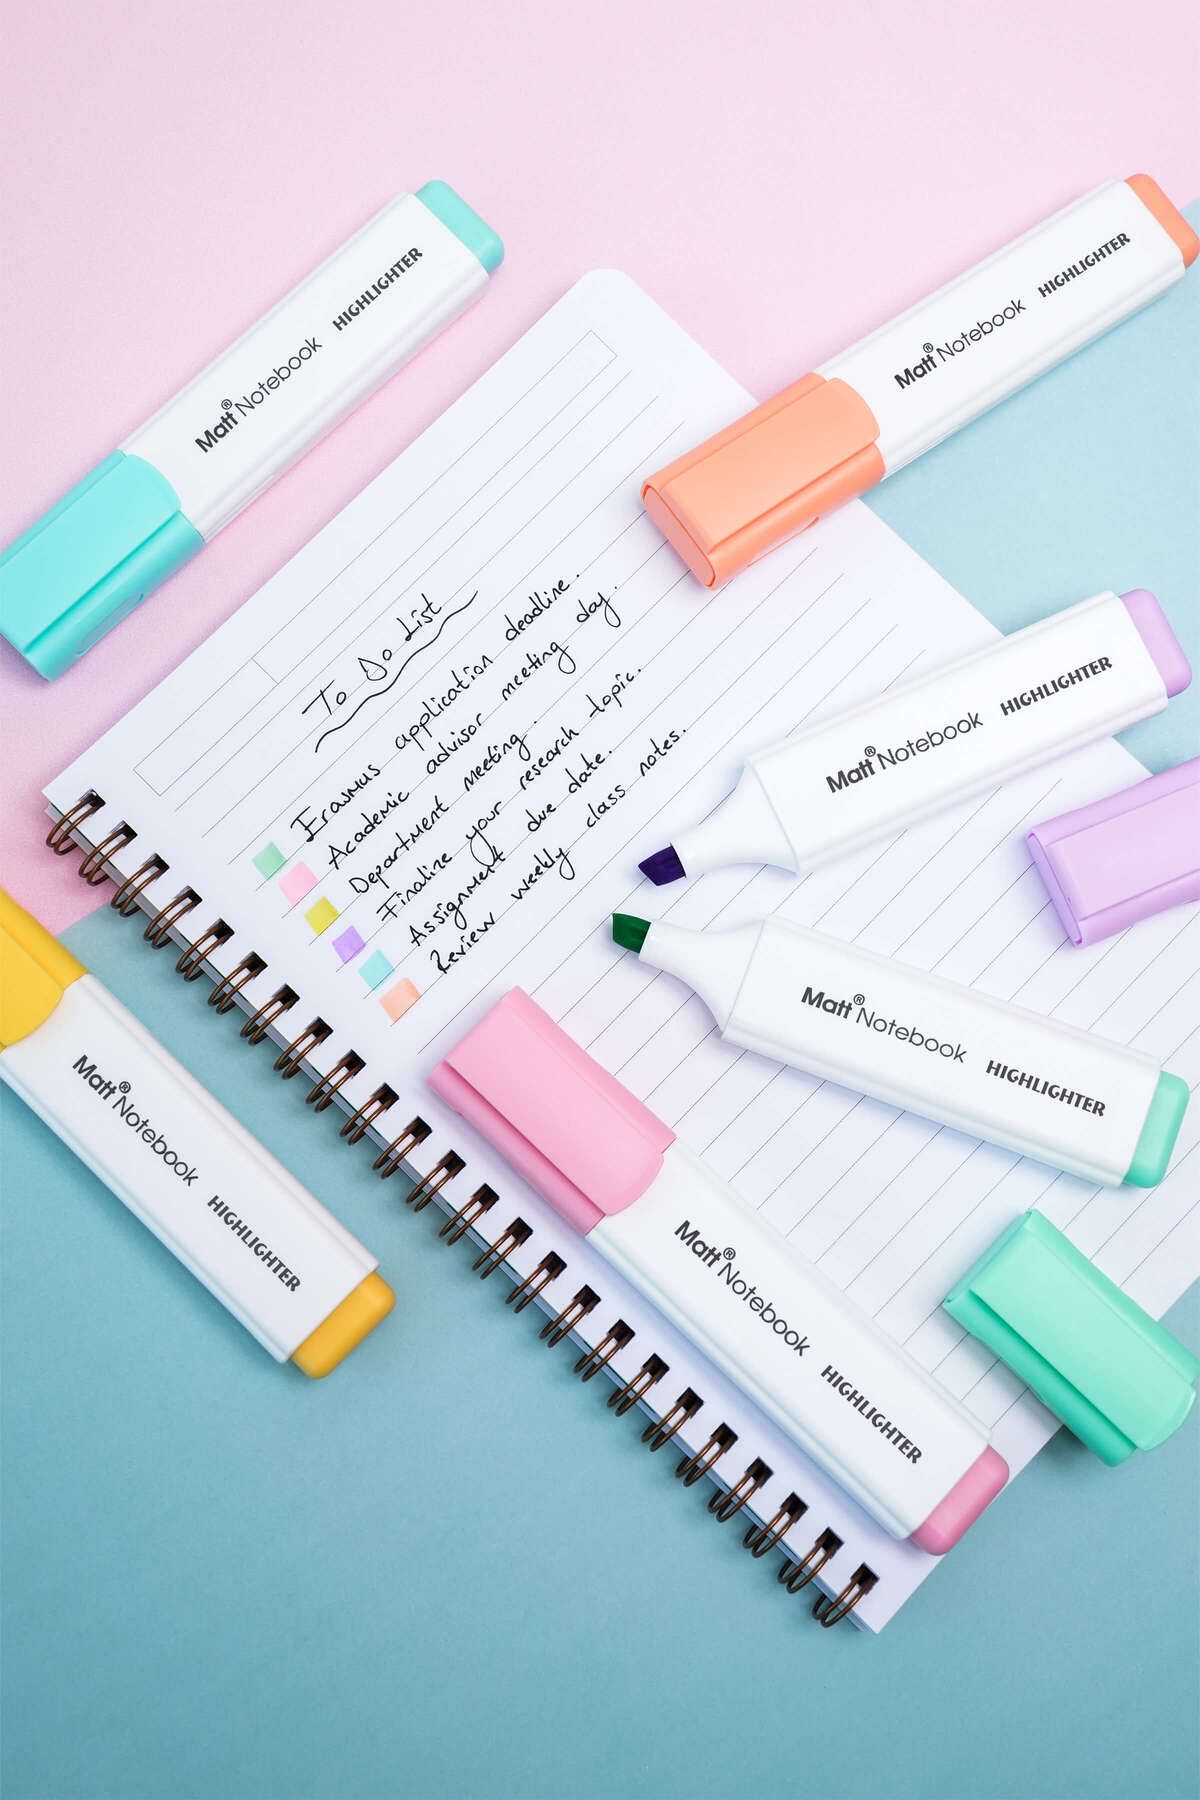 Matt® Notebook HIGHLIGHTER
Matt® Notebook HIGHLIGHTER
To Do List
Erasmus application deadline.
Academic advisor meeting day.
Department meeting.
Finalize your research topic.
Assignment due date.
Review weekly class notes.
Matt® Notebook HIGHLIGHTER
Matt® Notebook HIGHLIGHTER
Matt® Notebook HIGHLIGHTER
Matt® Notebook HIGHLIGHTER